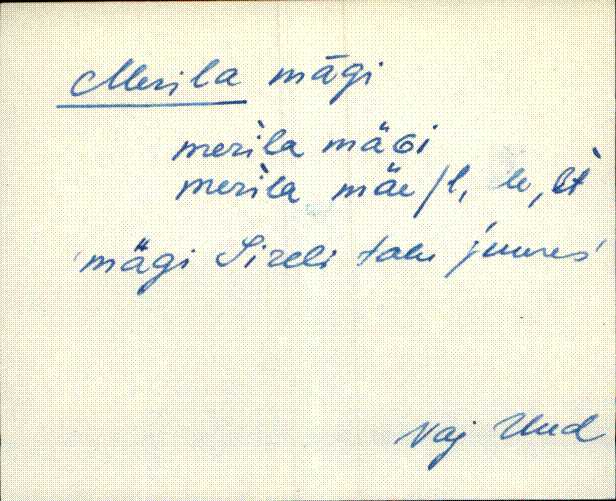 Merila mägi
merìla mäGi
merìla mäe /l, le, lt
'mägi Sireli talu juures'
Vaj Uud